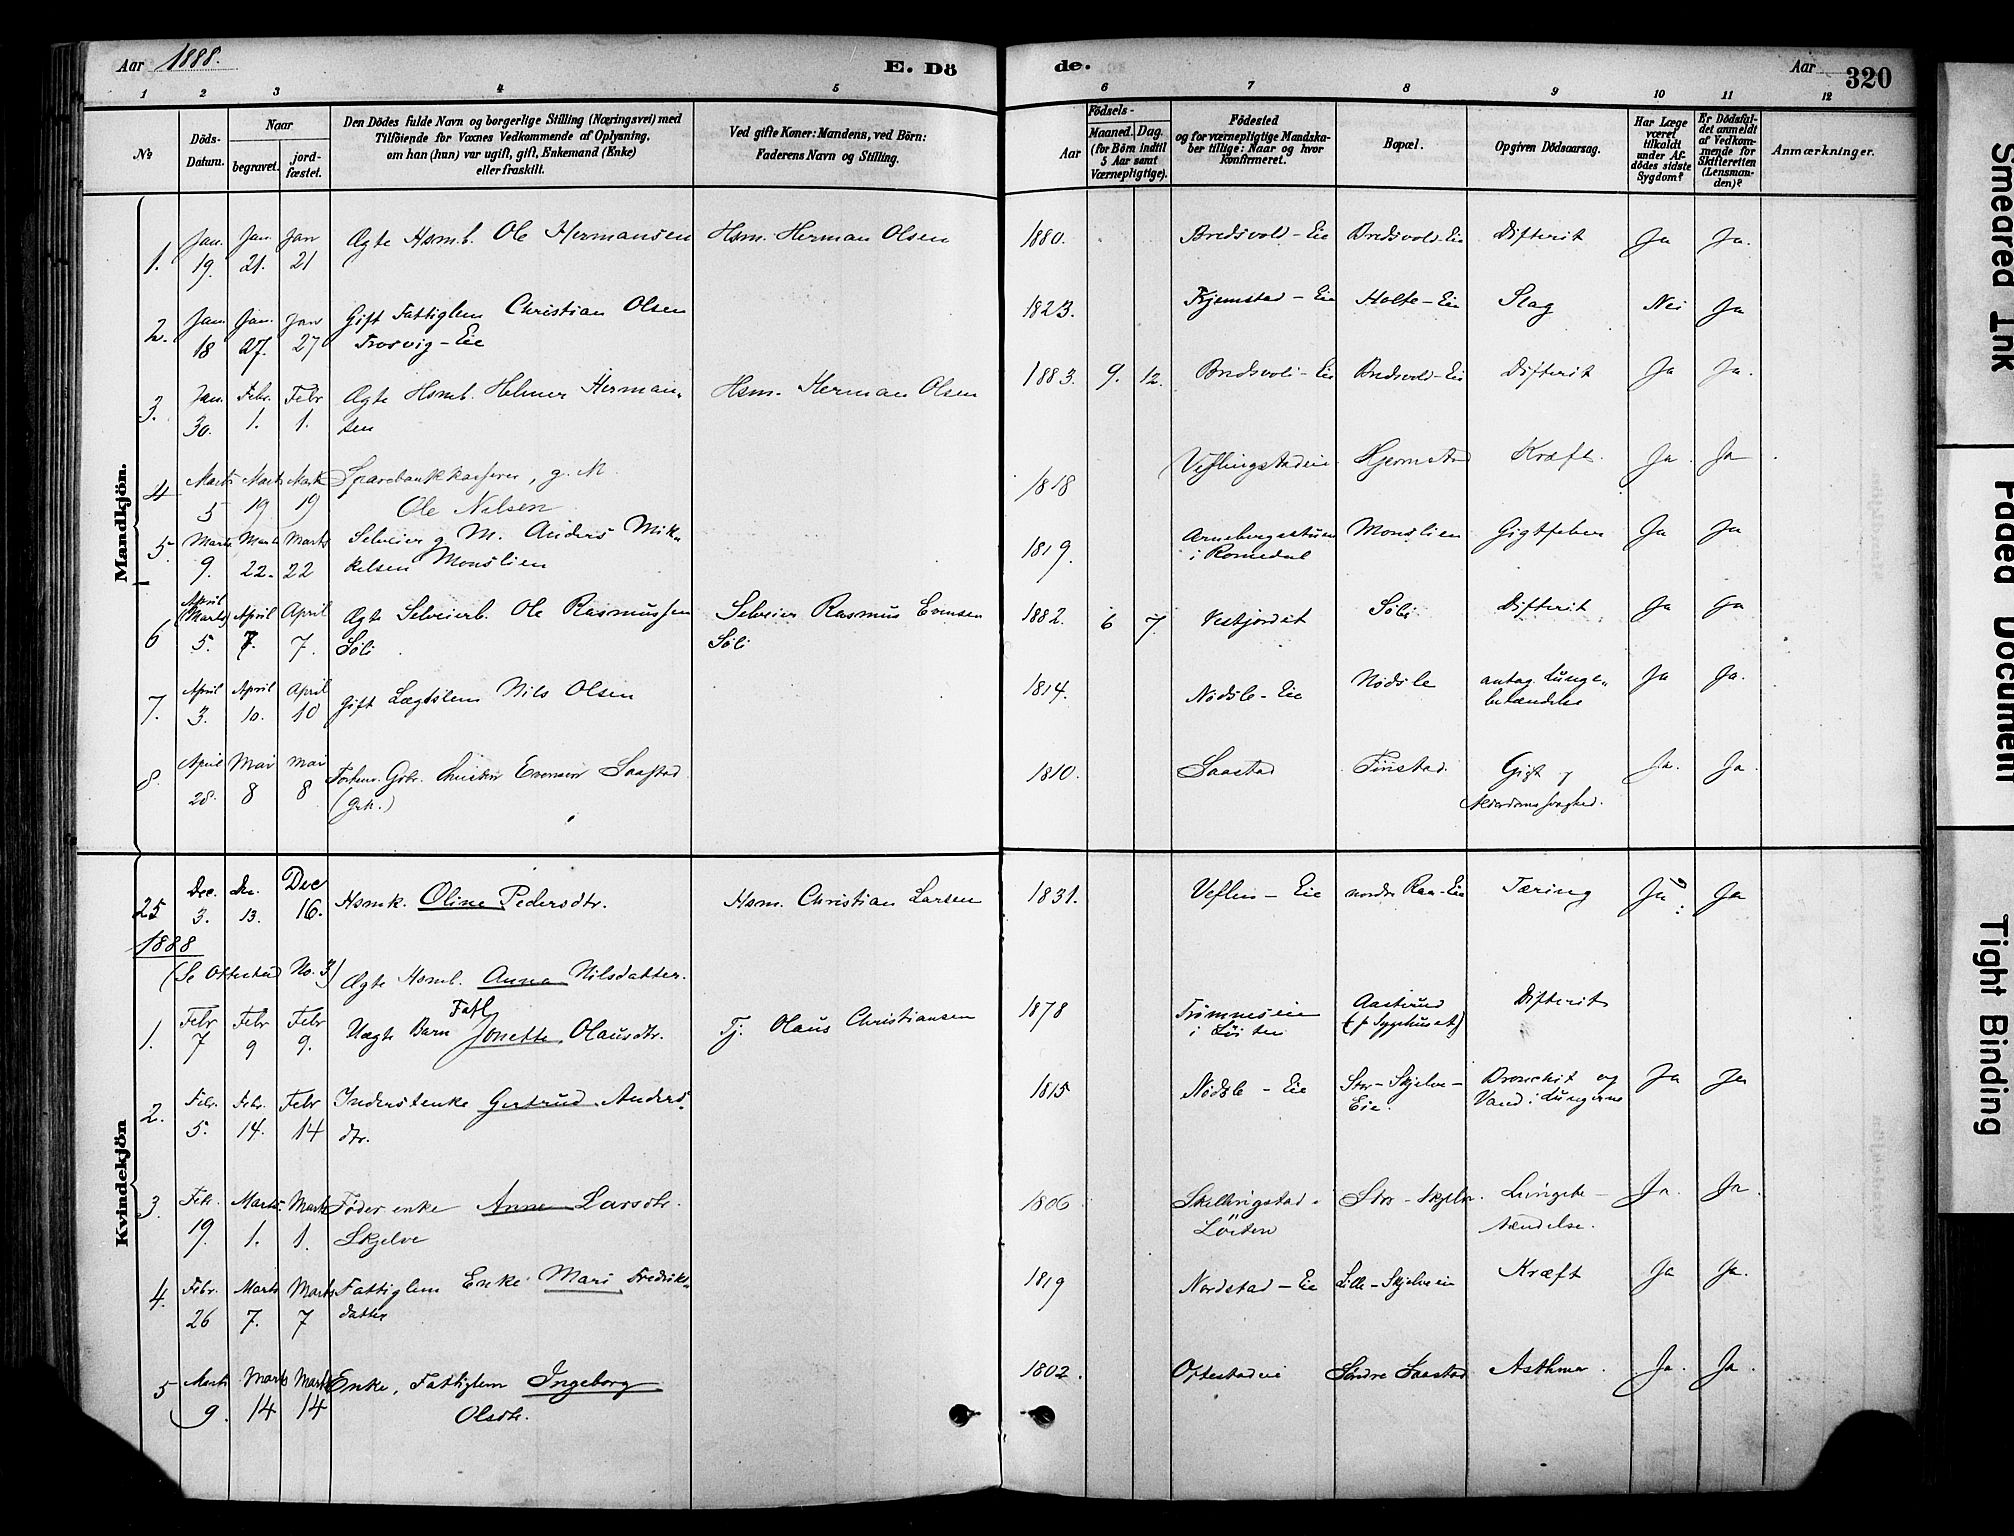 Aar 1888.
E. Dö
de.
Aar 320
1 2 3 4 5 6 7 8 9 10 11 12
No
Döds-Datum.
Naar
begravet.
jord-fæstet.
Den Dödes fulde Navn og borgerlige Stilling (Næringsvei) med
Tilföiende for Voxnes Vedkommende af Oplysning,
om han (hun) var ugift, gift, Enkemand (Enke)
eller fraskilt.
Ved gifte Koner: Mandens, ved Börn:
Faderens Navn og Stilling.
Födsels-
Aar
Maaned. Dag.
(for Börn indtil
5 Aar samt
Værnepligtige).
Födested
og for værnepligtige Mandska-
ber tillige: Naar og hvor
Konfirmeret.
Bopæl.
Opgiven Dödsaarsag.
Har Læge
været
tilkaldt
under Af-
dödes sidste
Sygdom?
Er Dödsfal-
det anmeldt
af Vedkom-
mende for
Skifteretten
(Lensman-
den)?
Anmærkninger.
Mandkjön.
1. Jan. 19. Jan. 21. Jan 21 Ægte Hsmb. Ole Hermansen Hsm. Herman Olsen 1880. Bredsvold-Eie Bredsvold-Eie Difterit Ja Ja.
2. Jan. 18 Jan. 27. Jan 27 Gift Fattiglem Christian Olsen 1823. Kjemstad-Eie Holte-Eie Slag Nei Ja
Frosvig-Eie
3. Jan. 30. Febr. 1. Febr 1. Ægte Hsmb. Helmer Herman- Hsm. Herman Olsen 1883. 9. 12. Bredsvold-Eie Bredsvold-Eie Difterit Ja Ja.
sen
4 Marts 5 Marts 19 Marts 19 Sparebankkasserer, g. M. 1818 Veflingstadeie Hjemstad Kræft Ja. Ja
Ole Nilsen
5. Marts 9. Marts 22. Marts 22 Selveier g. M. Anders Mik- 1819. Arnebergsstuen Monslien Gigtfeber Ja Ja
kelsen Monslien i Romedal
6 April (Marts) 5. April 7. April 7. Ægte Selveierb. Ole Rasmussen Selveier Rasmus Evensen 1882. 6 7. Vestjordet Söli Difterit Ja Ja
Söli Söli
7. April 3. April 10. April 10 Gift Lægdslem Nils Olsen 1814. Nödsle-Eie Nödsle antag. Lunge- Ja Ja.
betændelse
8. April 28. Mai 8 Mai 8 Forhenv. Gbr. Christen Evensen Saastad 1810. Saastad Finstad Gigt og Ja. Ja.
Alderdomssvaghed.
Kvindekjön
25 Dec. 3. Dec. 13. Dec 16. Hsmk. Oline Pedersdtr. Hsm. Christian Larsen 1831. Veflen-Eie nordr Raa-Eie Tæring Ja Ja
1888
(Se Ottestad No. 3) Ægte Hsmb. Anna Nilsdatter.
1. Febr 7 Febr 9 Febr. 9. Uægte Barn Fatl Jonette Olausdtr. Tj. Olaus Christiansen 1878 Frömneseie Aasterud Difterit
i Löiten (p Sygehuset)
2. Febr. 5. Febr. 14. Febr 14 Inderstenke Gertrud Anders- 1815 Nödsle-Eie Stor-Skjelve- Bronchit og Ja Ja
dtr. Eie. Vand i Lungerne
3. Febr. 19. Marts 1. Marts 1. Föder enke Anne Larsdtr. 1806 Skellingstad i Stor-Skjelve Lungebe- Ja. Ja.
Skjelve Löiten tændelse.
4. Febr. 26 Marts 7. Marts 7 Fattiglem Enke Mari Fredriks- 1819 Nordstad-Eie Lille-Skjelveeie Kræft Ja Ja.
datter
5 Marts 9. Marts 14 Marts 14 Enke, Fattiglem Ingeborg 1802. Ottestadeie Söndre Saastad Asthma. Ja. Ja.
Olsdtr.
Smeared Ink
Faded Document
Tight Binding